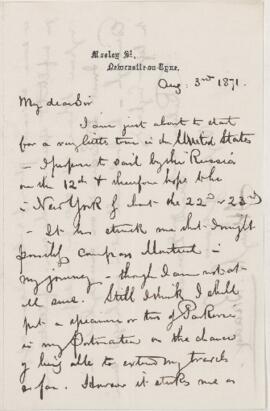 Mosley St.,
Newcastle-on-Tyne.
Aug. 3rd 1871.
My dear Sir
I am just about to start
for a very little tour in the United States
– I propose to sail by the Russia
on the 12th & therefore hope to be
in New York by about the 22nd or 23rd
– It has struck me that I might
possibly compass Montreal in
my journey – though I am not at
all sure. Still I think I shall
put a specimen or two of
in my Portmanteau on the chance
of being able to extend my travels
so far. However it strikes me as